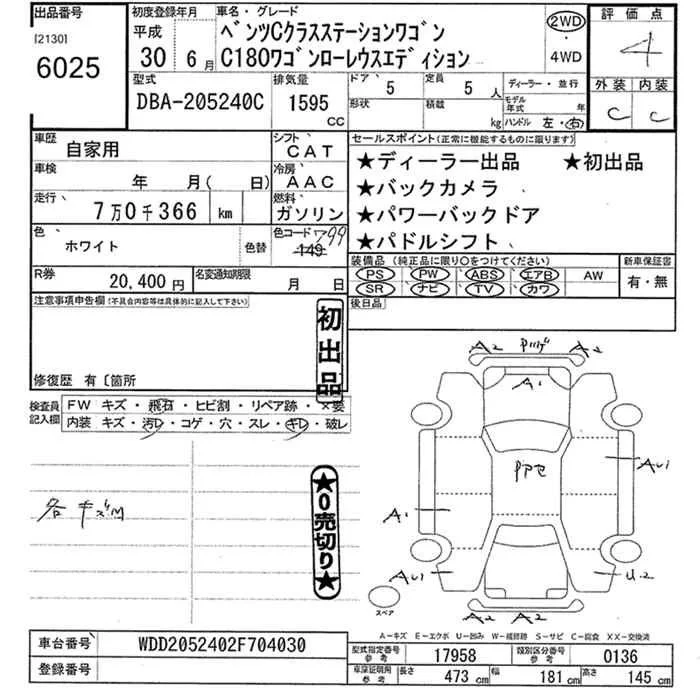 出品番号
[2130]
6025
初度登録年月
平成
30 年 6 月
車名・グレード
ベンツCクラスステーションワゴン
C180ワゴンローレウスエディション
2WD
4WD
評価点
4
外装 内装
C C
型式
DBA-205240C
排気量
1595
CC
ドア
5
定員
5
人
形状
積載
kg
ディーラー・並行
モデル年式
年
ハンドル 左・右
車歴
自家用
シフト
CAT
車検
年 月( 日)
冷房
AAC
走行
7万0千366 km
燃料
ガソリン
色
ホワイト
色替
色コード
149
799
R券
20,400 円
名変通知期限
月 日
セールスポイント(正常に機能するものに限ります)
★ディーラー出品 ★初出品
★バックカメラ
★パワーバックドア
★パドルシフト
装備品 (純正品に限り○をつけてください)
PS PW ABS エアB AW
SR ナビ TV カワ
新車保証書
有・無
後日品
注意事項申告欄(不具合内容等は具体的に記入して下さい)
初出品
修復歴 有 〔箇所
検査員
記入欄
FW キズ・飛石・ヒビ割・リペア跡・×要
内装 キズ・汚レ・コゲ・穴・スレ・キレ・破レ
各キズM
★0売切り★
A2
A1
A1
AU1
AU1
U2
A2 A2
スペア
A-キズ E-エクボ U-凹み W-補修跡 S-サビ C-腐食 XX-交換済
車台番号
WDD2052402F704030
登録番号
型式指定番号
参考
17958
類別区分番号
参考
0136
車庫証明用
参考
長さ
473 cm
幅
181 cm
高さ
145 cm